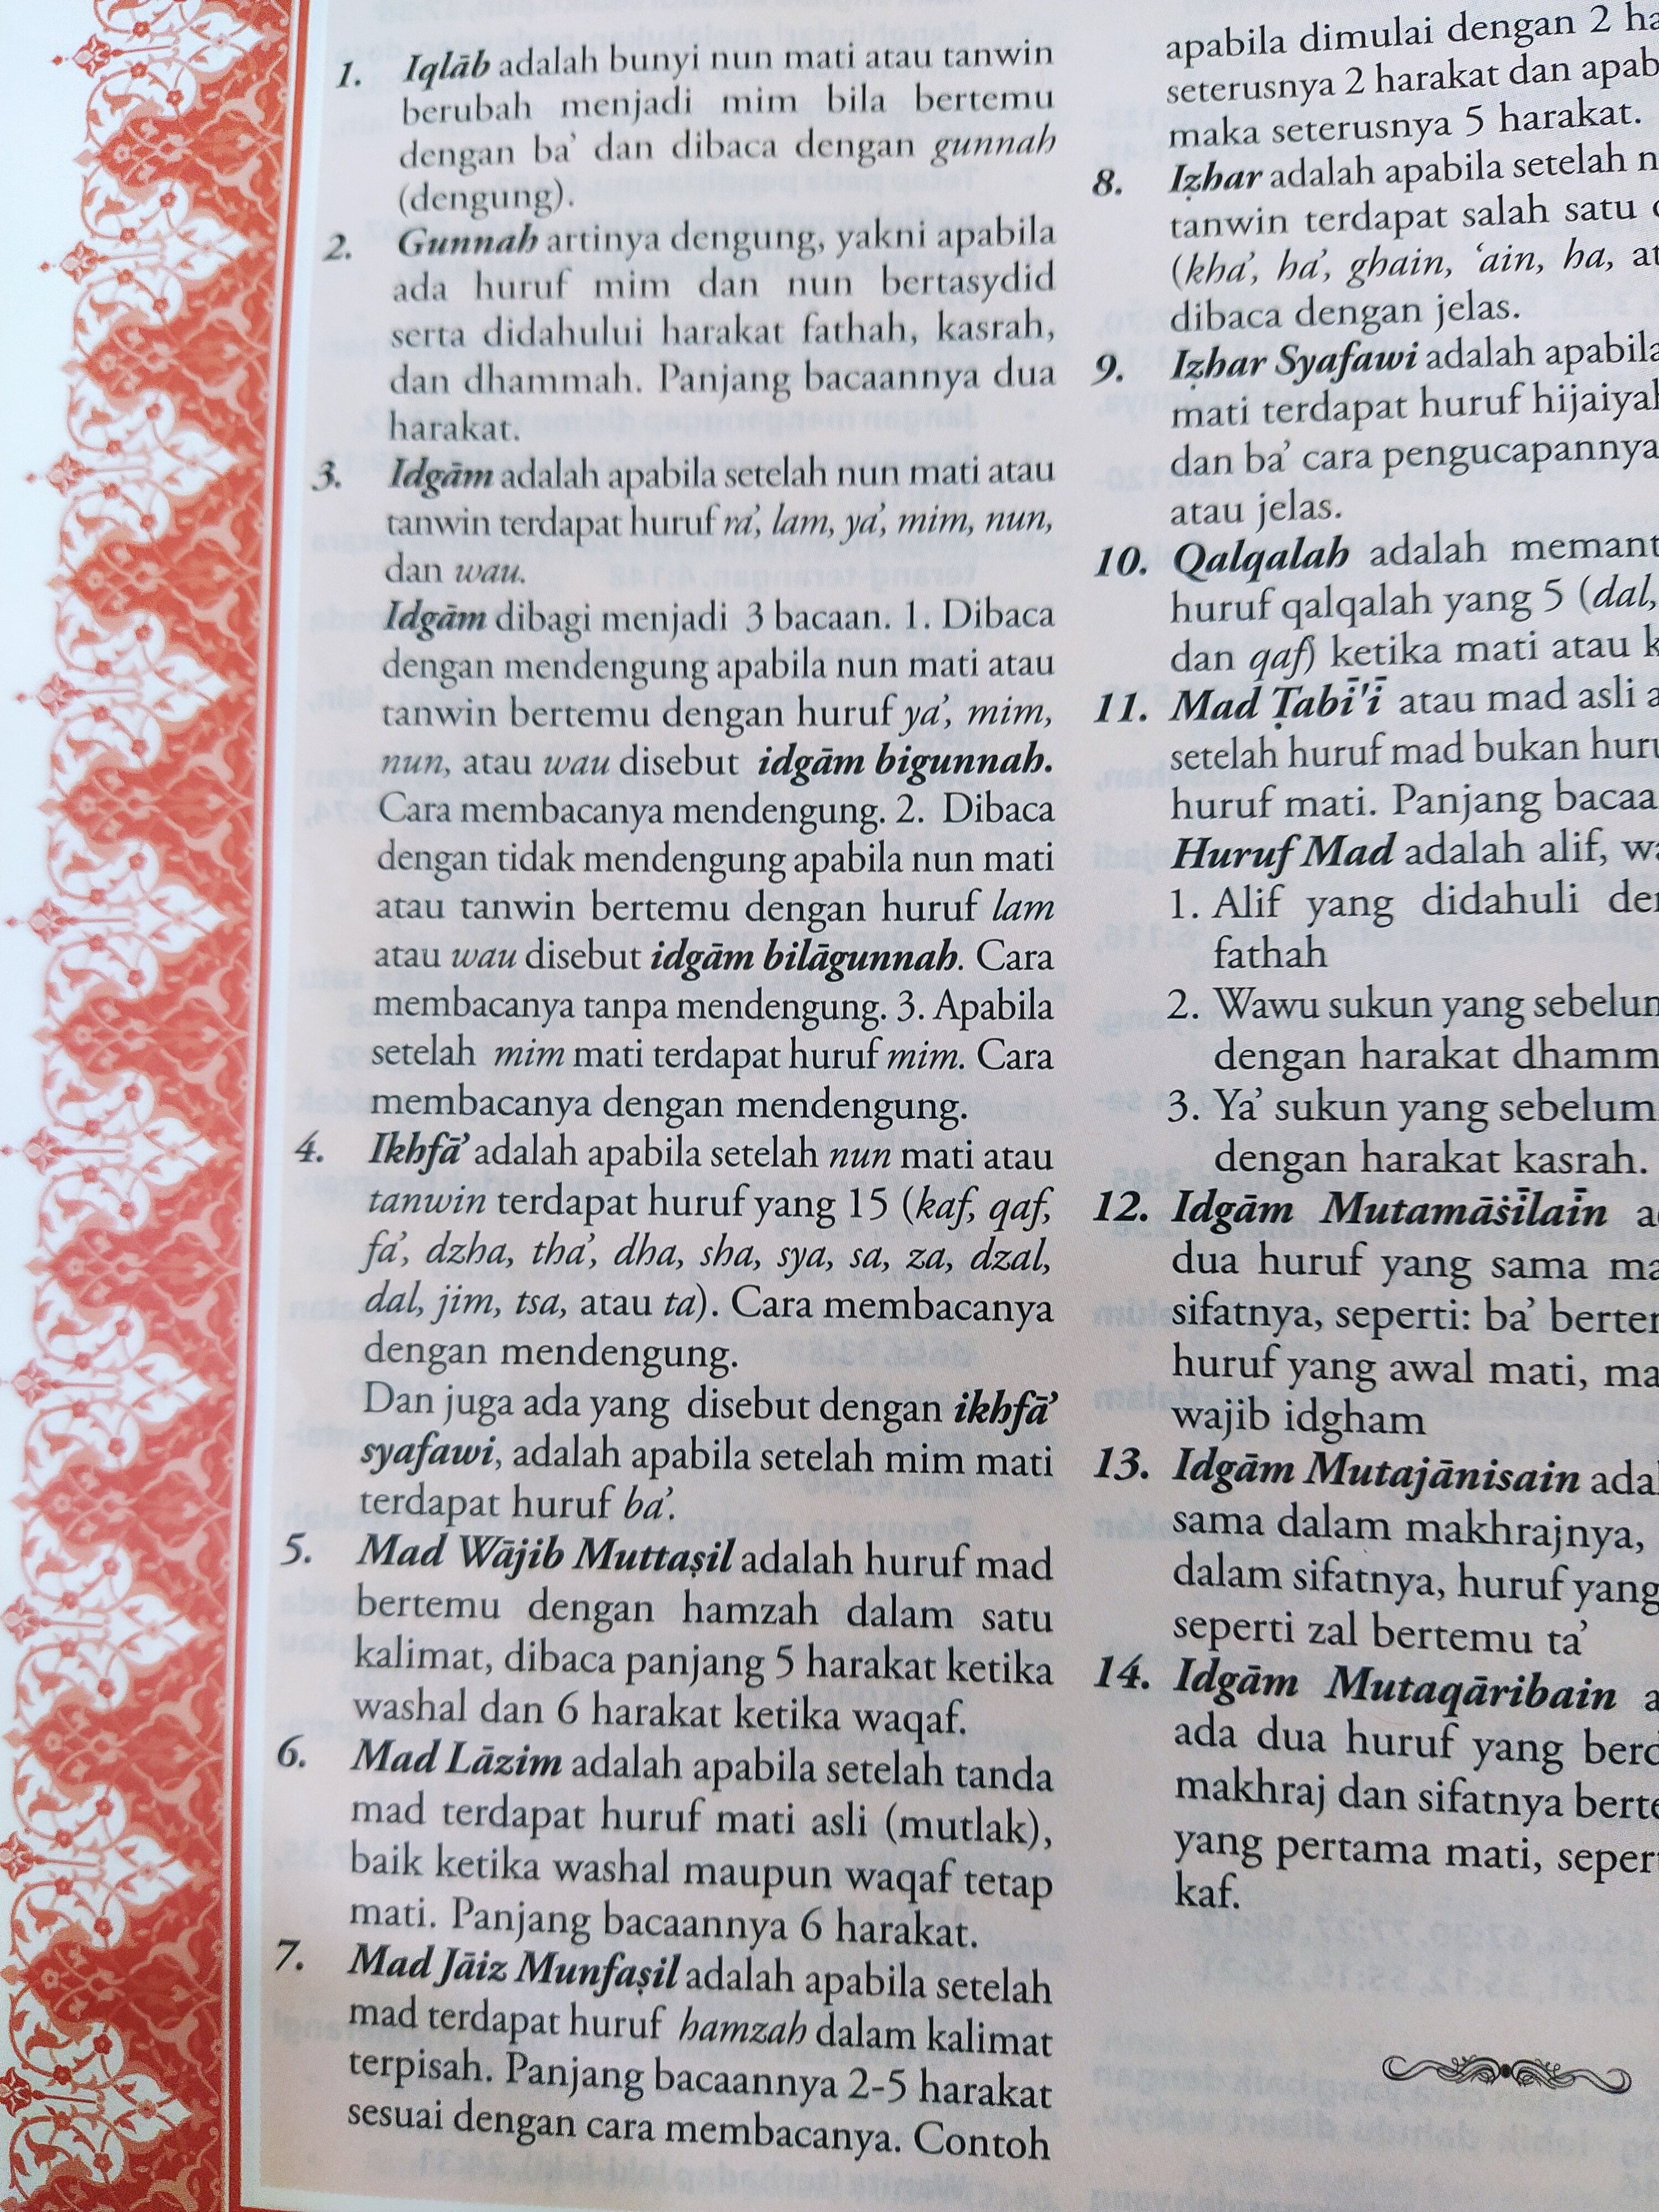 1. Iqlāb adalah bunyi nun mati atau tanwin
berubah menjadi mim bila bertemu
dengan ba’ dan dibaca dengan gunnah
(dengung).
2. Gunnah artinya dengung, yakni apabila
ada huruf mim dan nun bertasydid
serta didahului harakat fathah, kasrah,
dan dhammah. Panjang bacaannya dua
harakat.
3. Idgām adalah apabila setelah nun mati atau
tanwin terdapat huruf ra’, lam, ya’, mim, nun,
dan wau.
Idgām dibagi menjadi 3 bacaan. 1. Dibaca
dengan mendengung apabila nun mati atau
tanwin bertemu dengan huruf ya’, mim,
nun, atau wau disebut idgām bigunnah.
Cara membacanya mendengung. 2. Dibaca
dengan tidak mendengung apabila nun mati
atau tanwin bertemu dengan huruf lam
atau wau disebut idgām bilāgunnah. Cara
membacanya tanpa mendengung. 3. Apabila
setelah mim mati terdapat huruf mim. Cara
membacanya dengan mendengung.
4. Ikhfā’ adalah apabila setelah nun mati atau
tanwin terdapat huruf yang 15 (kaf, qaf,
fa’, dzha, tha’, dha, sha, sya, sa, za, dzal,
dal, jim, tsa, atau ta). Cara membacanya
dengan mendengung.
Dan juga ada yang disebut dengan ikhfā’
syafawi, adalah apabila setelah mim mati
terdapat huruf ba’.
5. Mad Wājib Muttaṣil adalah huruf mad
bertemu dengan hamzah dalam satu
kalimat, dibaca panjang 5 harakat ketika
washal dan 6 harakat ketika waqaf.
6. Mad Lāzim adalah apabila setelah tanda
mad terdapat huruf mati asli (mutlak),
baik ketika washal maupun waqaf tetap
mati. Panjang bacaannya 6 harakat.
7. Mad Jāiz Munfaṣil adalah apabila setelah
mad terdapat huruf hamzah dalam kalimat
terpisah. Panjang bacaannya 2-5 harakat
sesuai dengan cara membacanya. Contoh
apabila dimulai dengan 2 ha
seterusnya 2 harakat dan apab
maka seterusnya 5 harakat.
8. Iẓhar adalah apabila setelah n
tanwin terdapat salah satu
(kha’, ha’, ghain, ‘ain, ha, at
dibaca dengan jelas.
9. Iẓhar Syafawi adalah apabila
mati terdapat huruf hijaiyah
dan ba’ cara pengucapannya
atau jelas.
10. Qalqalah adalah memant
huruf qalqalah yang 5 (dal,
dan qaf) ketika mati atau k
11. Mad Ṭabī'ī atau mad asli a
setelah huruf mad bukan huru
huruf mati. Panjang bacaa
Huruf Mad adalah alif, wa
1. Alif yang didahuli der
fathah
2. Wawu sukun yang sebelum
dengan harakat dhamm
3. Ya’ sukun yang sebelum
dengan harakat kasrah.
12. Idgām Mutamāṡilain a
dua huruf yang sama ma
sifatnya, seperti: ba’ berter
huruf yang awal mati, ma
wajib idgham
13. Idgām Mutajānisain adal
sama dalam makhrajnya,
dalam sifatnya, huruf yang
seperti zal bertemu ta’
14. Idgām Mutaqāribain a
ada dua huruf yang berd
makhraj dan sifatnya berte
yang pertama mati, sepert
kaf.